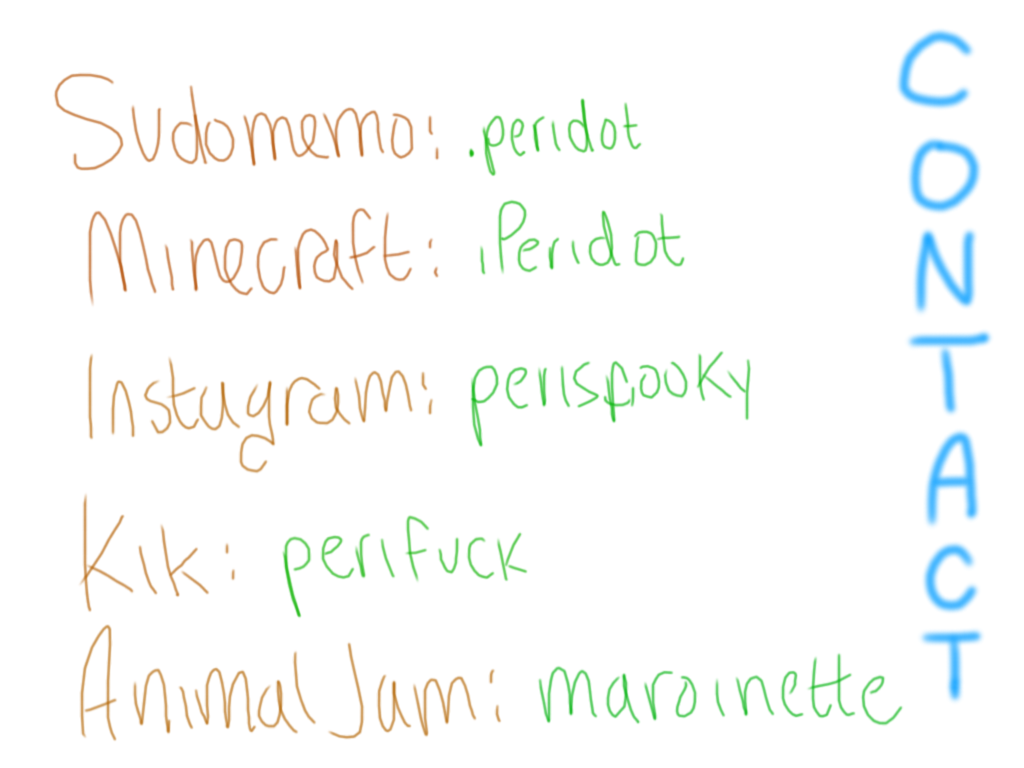 Sudomemo: .peridot
Minecraft: iPeridot
Instagram: perispooky
Kik: perifuck
Animal Jam: maroinette
CONTACT